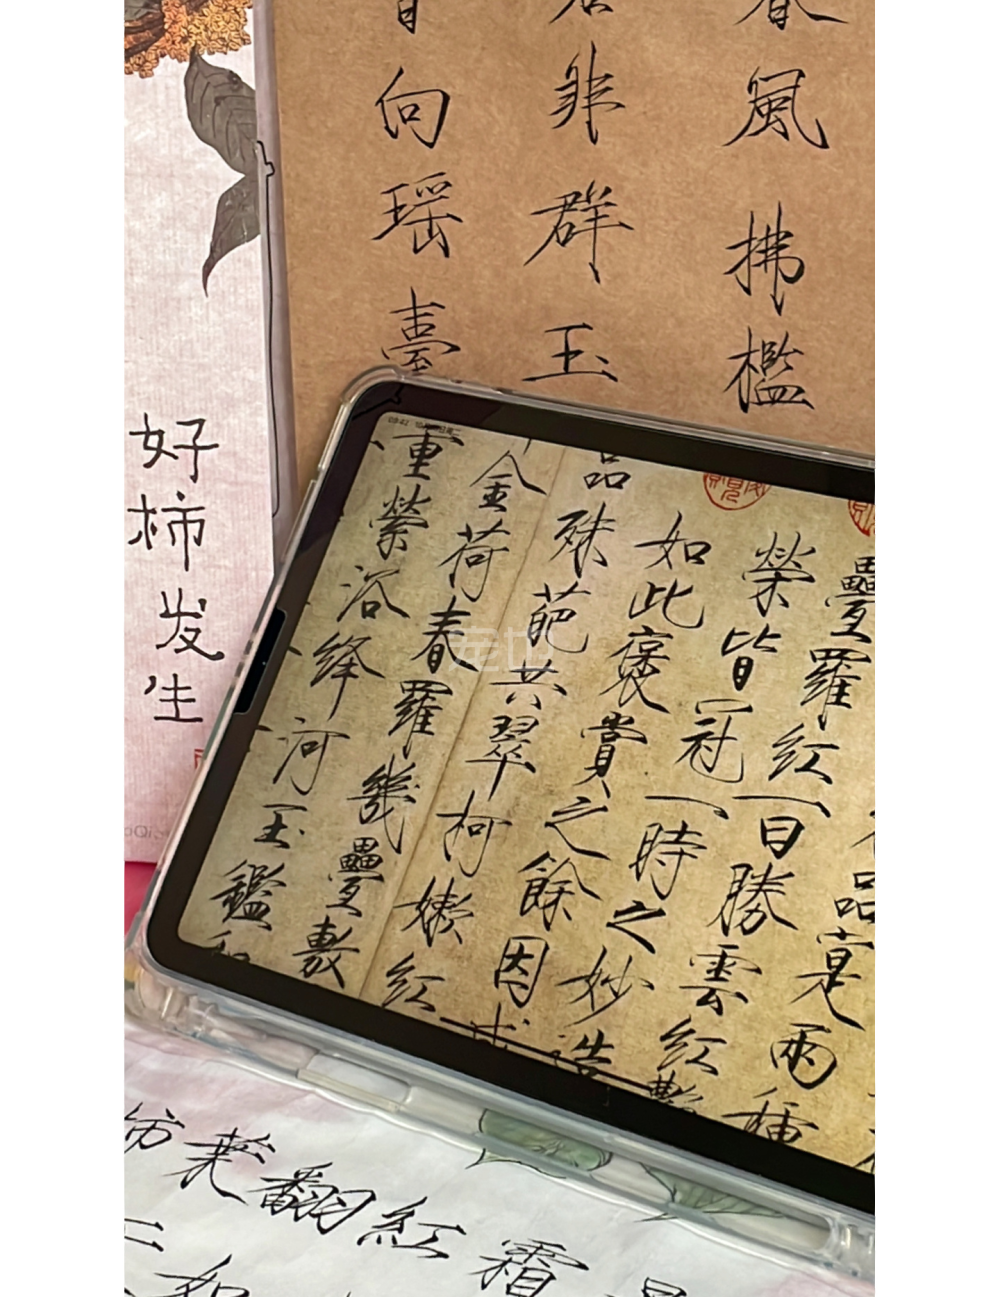 春風拂檻
若非群玉
向瑶臺
好柿发生
品實兩種
疊羅紅一曰勝雲紅艷
榮皆冠一時之妙造
如此褒賞之餘因成
品殊葩共翠柯嫩紅
金荷春羅幾疊敷
重縈浴絳河玉鑑和
柿葉翻紅霜
如